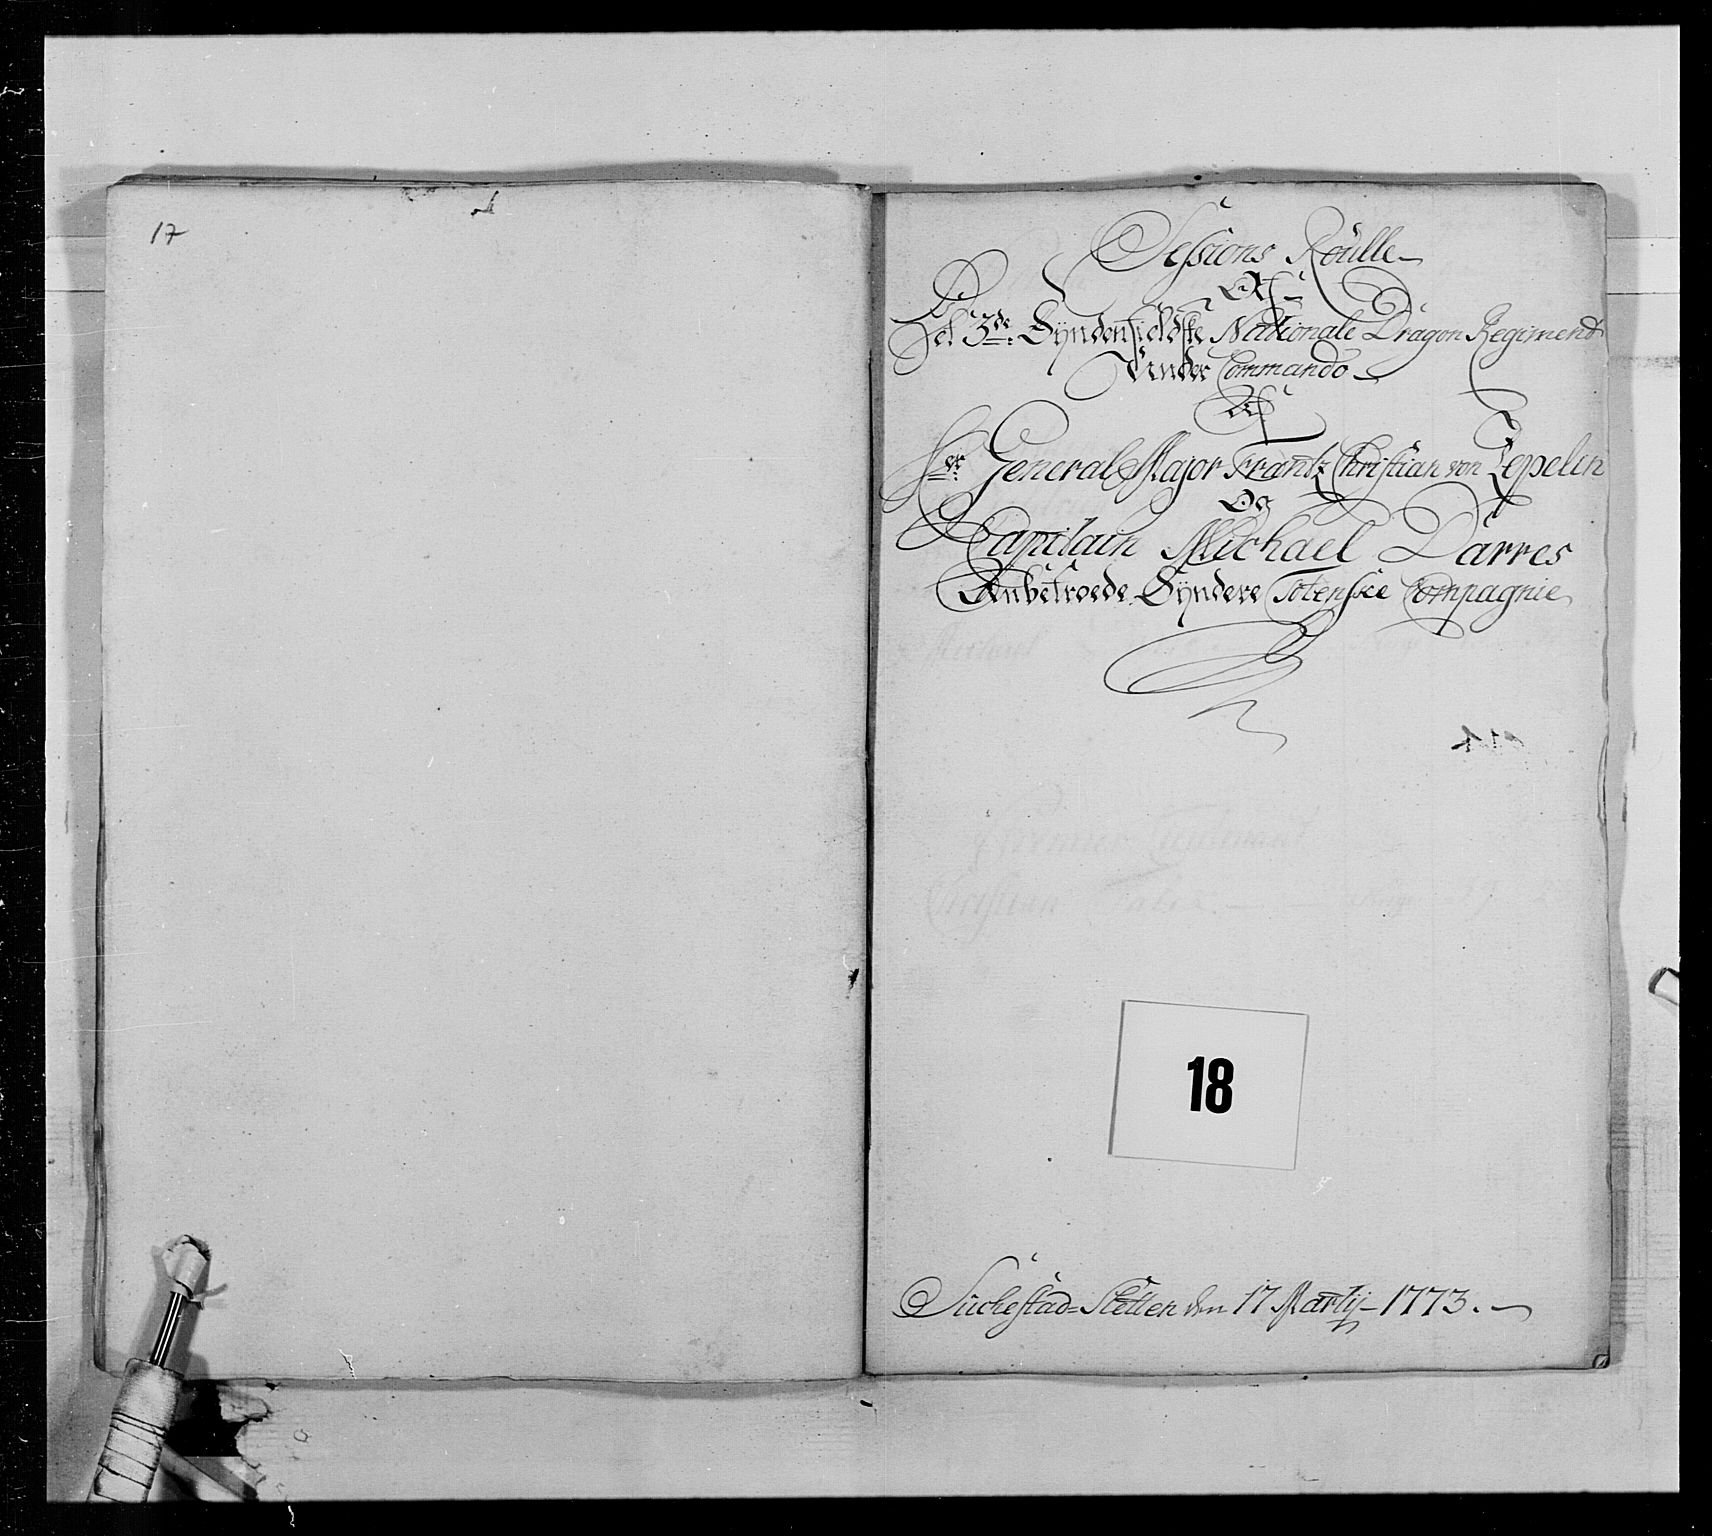 17
Sessions Roulle
Af
Det 3de Syndenfieldske Nationale Dragon Regiment
Under Commando
Af
Hr General Major Frantz Christian von Lepelin
Og
Capitain Michael Darres
Anbetroede Syndere Totenske Compagnie
18
Stetten den 17 Martij 1773.